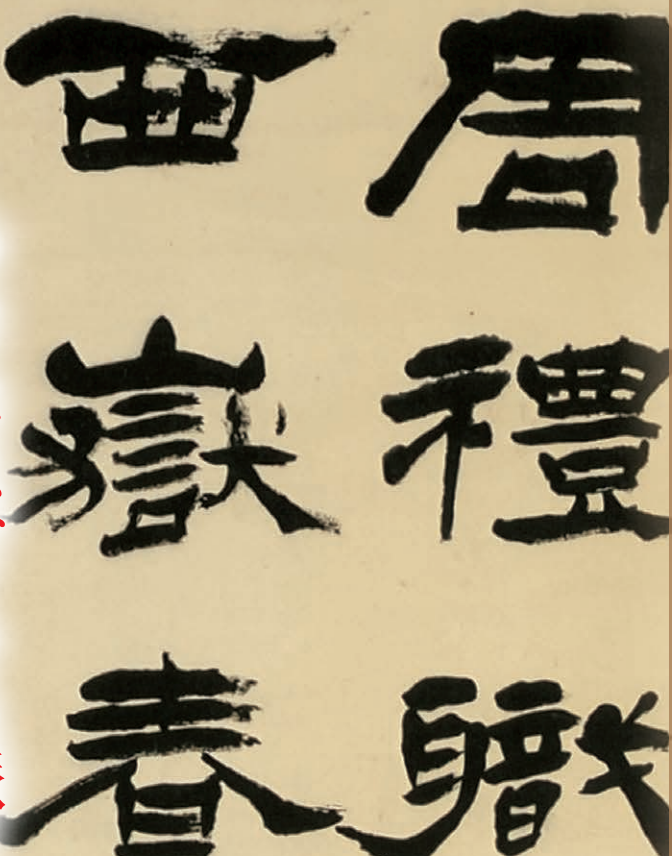 周禮職
西嶽春